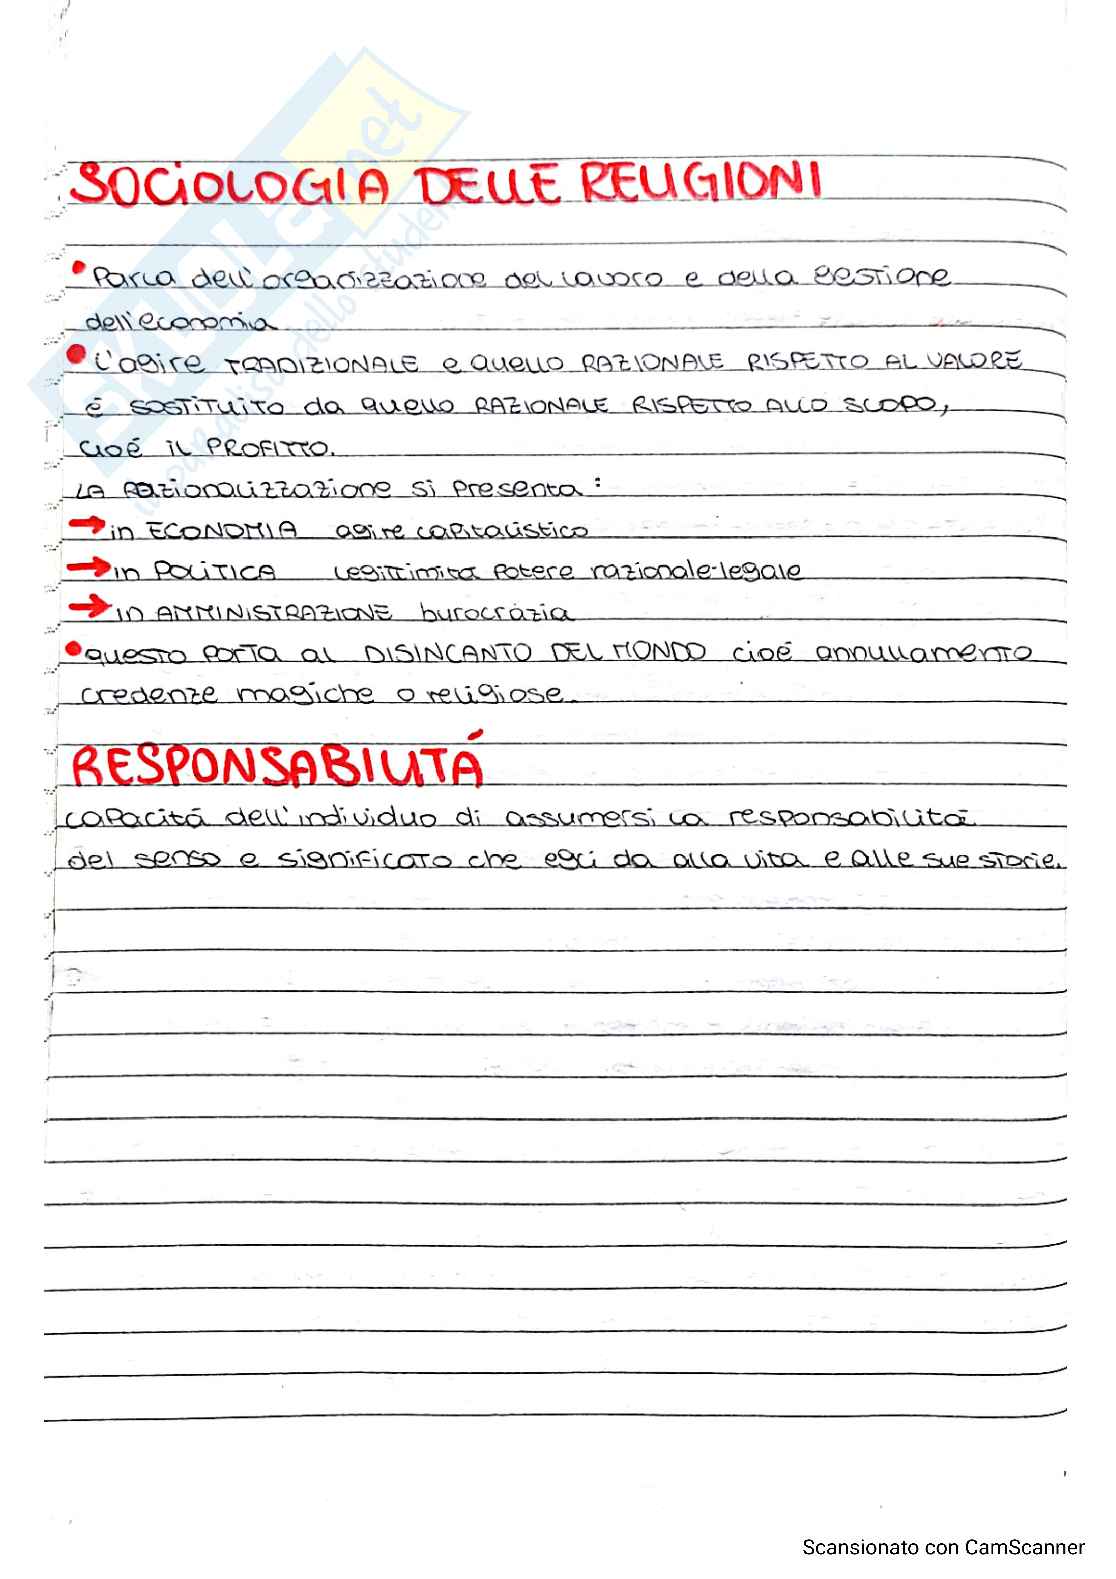 SOCIOLOGIA DELLE RELIGIONI
• Parla dell'organizzazione del lavoro e della gestione
dell'economia
• L'agire TRADIZIONALE e quello RAZIONALE RISPETTO AL VALORE
é SOSTITUITO da quello RAZIONALE RISPETTO ALLO SCOPO,
cioé il PROFITTO.
LA Razionalizzazione si presenta:
→ in ECONOMIA agire capitalistico
→ in POLITICA legittimita potere razionale-legale
→ in AMMINISTRAZIONE burocrazia
• questo porta al DISINCANTO DEL MONDO cioé annullamento
credenze magiche o religiose.
RESPONSABILITÁ
capacitá dell'individuo di assumersi la responsabilitá
del senso e significato che egli da alla vita e alle sue storie.
SKUOLA.net
il paradiso dello studente
Scansionato con CamScanner